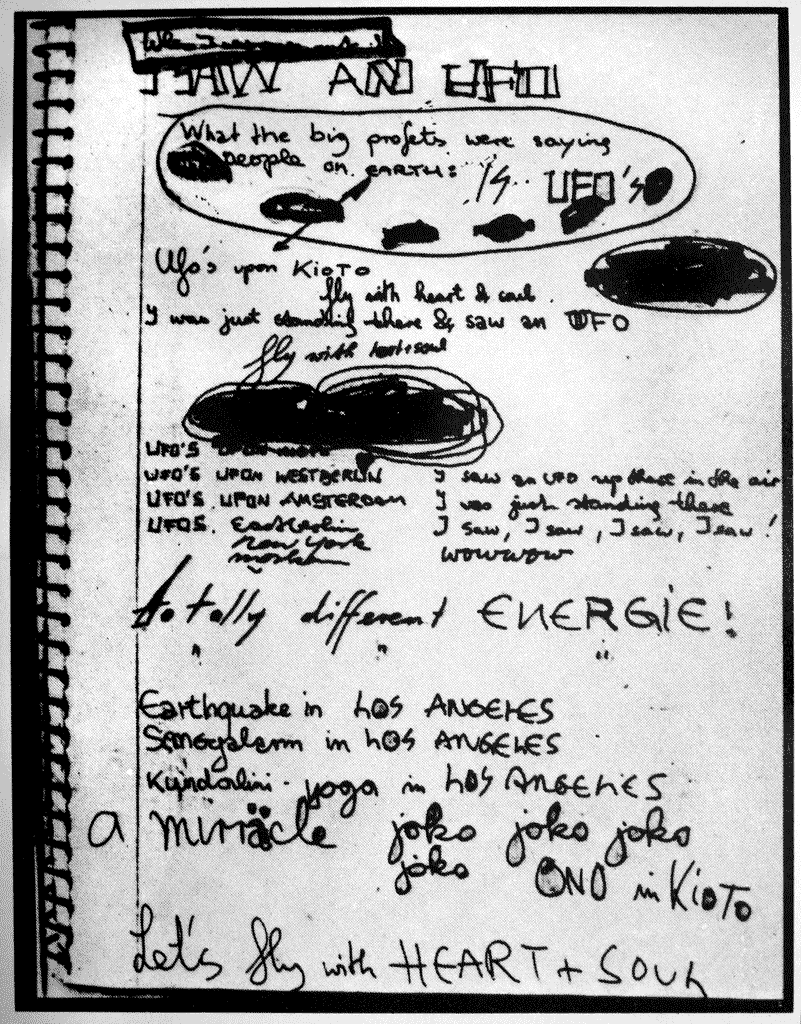 I SAW AN UFO
What the big profets were saying
people on EARTH: IS... UFO'S
Ufo's upon KIOTO
fly with heart & soul
I was just standing there & saw an UFO
fly with heart + soul
UFO'S UPON
UFO'S UPON WESTBERLIN
UFO'S UPON AMSTERDAM
UFOS. Eastberlin
new york
moskau
I saw an UFO up there in the air
I was just standing there
I saw, I saw, I saw, I saw!
wowwow
totally different ENERGIE!
Earthquake in LOS ANGELES
in LOS ANGELES
Kündalini-yoga in LOS ANGELES
a miracle joko joko joko
joko ONO in KIOTO
Let's fly with HEART + SOUL